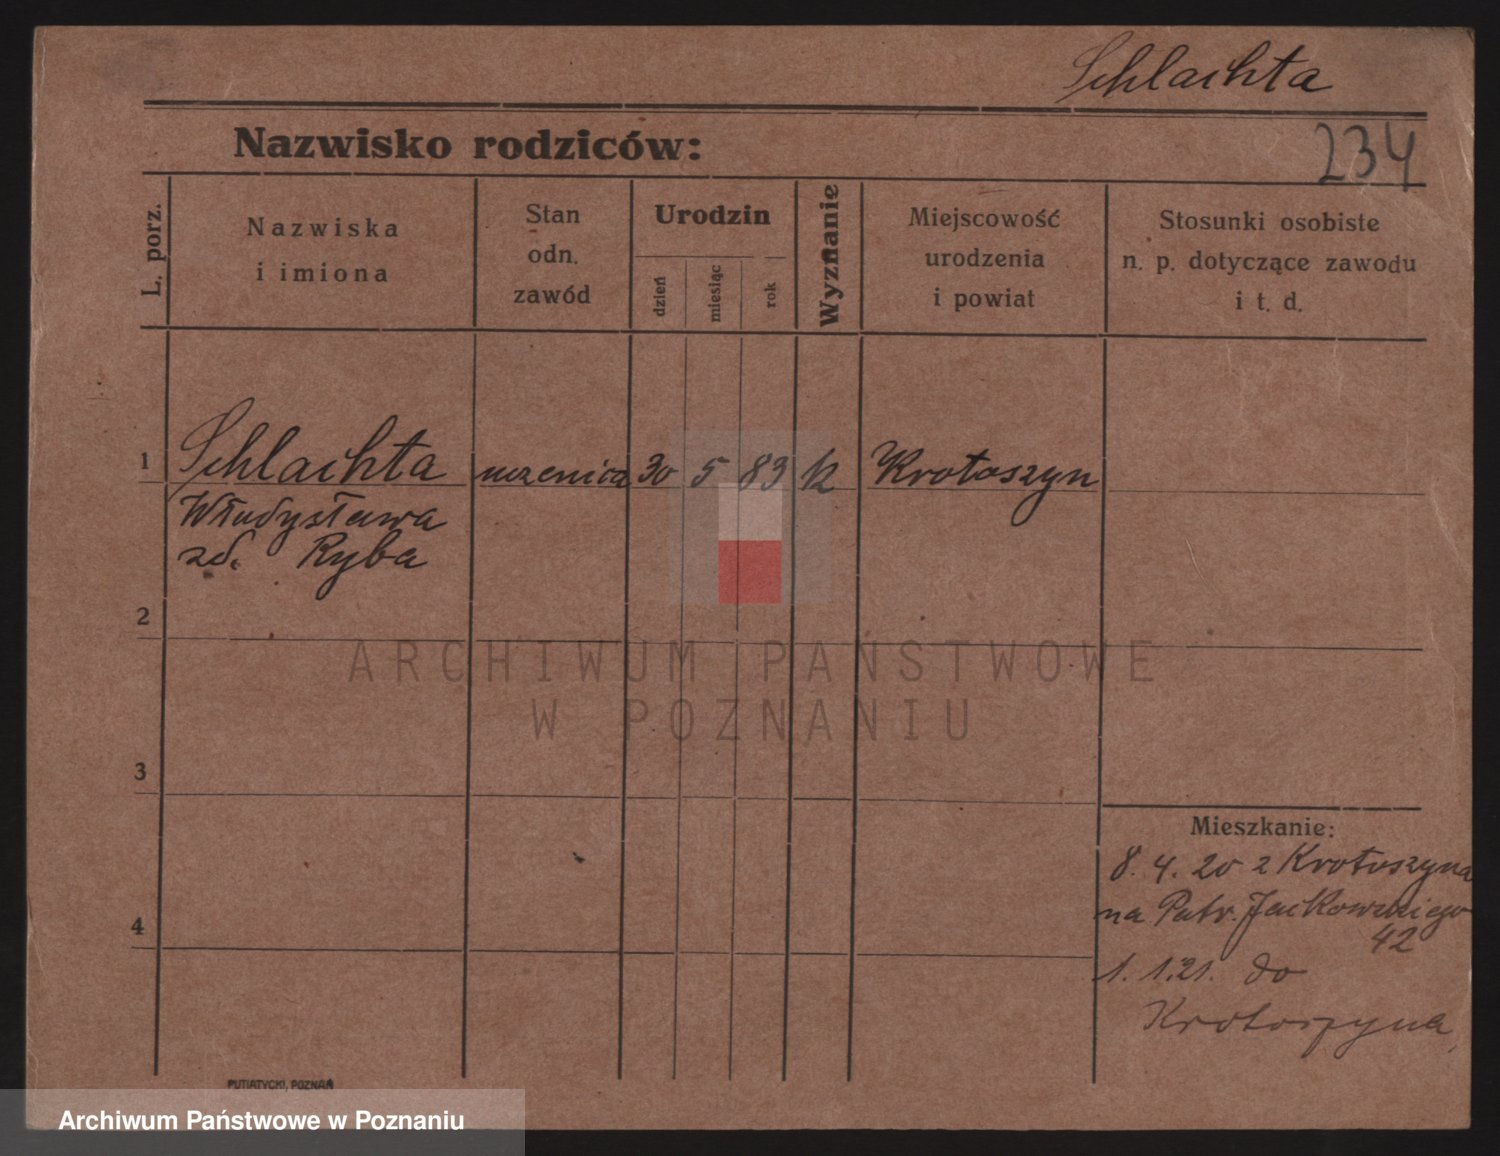 Schlachta
Nazwisko rodziców:
234
L. porz.
Nazwiska
i imiona
Stan
odn.
zawód
Urodzin
dzień
miesiąc
rok
Wyznanie
Miejscowość
urodzenia
i powiat
Stosunki osobiste
n. p. dotyczące zawodu
i t. d.
1 Schlachta uczenica 30 5 83 k Krotoszyn
Władysława
zd. Ryba
2
ARCHIWUM PAŃSTWOWE
W POZNANIU
3
Mieszkanie:
8. 4. 20 z Krotoszyna
na Patr. Jackowskiego
42
4
1. 1.21. do
Krotoszyna
PUTIATYCKI, POZNAŃ
Archiwum Państwowe w Poznaniu